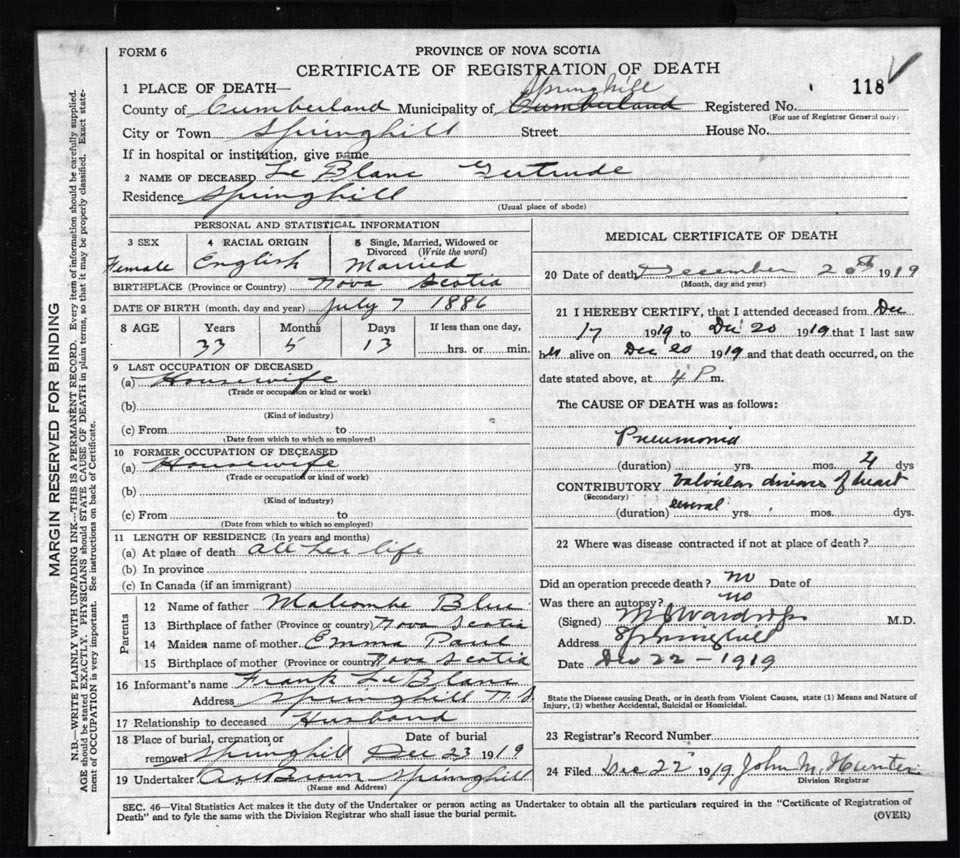 FORM 6
PROVINCE OF NOVA SCOTIA
CERTIFICATE OF REGISTRATION OF DEATH
118
1 PLACE OF DEATH—
Springhill
County of Cumberland Municipality of Cumberland Registered No.
(For use of Registrar General only)
City or Town Springhill Street House No.
If in hospital or institution, give name
2 NAME OF DECEASED Le Blanc Gertrude
Residence Springhill
(Usual place of abode)
PERSONAL AND STATISTICAL INFORMATION
3 SEX 4 RACIAL ORIGIN 5 Single, Married, Widowed or Divorced (Write the word)
Female English Married
BIRTHPLACE (Province or Country) Nova Scotia
DATE OF BIRTH (month, day and year) July 7 1886
8 AGE Years Months Days If less than one day,
33 5 13 hrs. or min.
9 LAST OCCUPATION OF DECEASED
(a) Housewife
(Trade or occupation or kind or work)
(b)
(Kind of industry)
(c) From to
(Date from which to which so employed)
10 FORMER OCCUPATION OF DECEASED
(a) Housewife
(Trade or occupation or kind of work)
(b)
(Kind of industry)
(c) From to
(Date from which to which so employed)
11 LENGTH OF RESIDENCE (In years and months)
(a) At place of death all her life
(b) In province
(c) In Canada (if an immigrant)
Parents
12 Name of father Malcombe Blue
13 Birthplace of father (Province or country) Nova Scotia
14 Maiden name of mother Emma Paul
15 Birthplace of mother (Province or country) Nova Scotia
16 Informant's name Frank Le Blanc
Address Springhill N.S
17 Relationship to deceased Husband
18 Place of burial, cremation or removal Springhill Date of burial Dec 23 1919
19 Undertaker Brown Springhill
(Name and Address)
MEDICAL CERTIFICATE OF DEATH
20 Date of death December 20th 1919
(Month, day and year)
21 I HEREBY CERTIFY, that I attended deceased from Dec
17 1919 to Dec 20 1919 that I last saw
her alive on Dec 20 1919 and that death occurred, on the
date stated above, at 4 P m.
The CAUSE OF DEATH was as follows:
Pneumonia
(duration) yrs. mos. 4 dys
CONTRIBUTORY Valvular disease of heart
(Secondary)
(duration) several yrs. mos. dys.
22 Where was disease contracted if not at place of death?
Did an operation precede death? no Date of
Was there an autopsy? no
(Signed) Wardrop M.D.
Address Springhill
Date Dec 22 - 1919
State the Disease causing Death, or in death from Violent Causes, state (1) Means and Nature of
Injury, (2) whether Accidental, Suicidal or Homicidal.
23 Registrar's Record Number
24 Filed Dec 22 1919 John M. Hunter
Division Registrar
SEC. 46—Vital Statistics Act makes it the duty of the Undertaker or person acting as Undertaker to obtain all the particulars required in the "Certificate of Registration of
Death" and to fyle the same with the Division Registrar who shall issue the burial permit. (OVER)
MARGIN RESERVED FOR BINDING
N.B.—WRITE PLAINLY WITH UNFADING INK—THIS IS A PERMANENT RECORD. Every item of information should be carefully supplied.
AGE should be stated EXACTLY. PHYSICIANS should STATE CAUSE OF DEATH in plain terms, so that it may be properly classified. Exact state-
ment of OCCUPATION is very important. See instructions on back of Certificate.